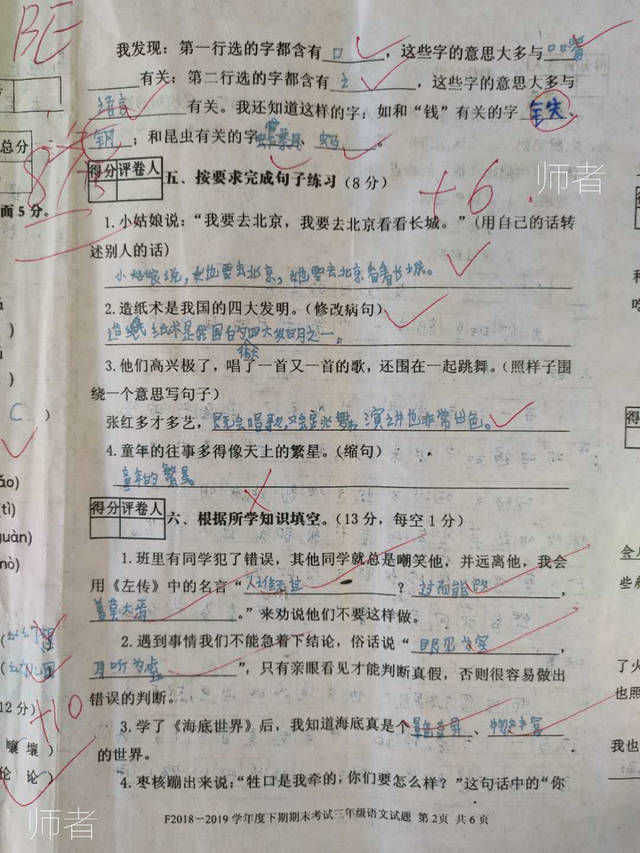 BE
我发现：第一行选的字都含有 口 ，这些字的意思大多与
有关：第二行选的字都含有 讠 ，这些字的意思大多与
语言 有关。我还知道这样的字：如和“钱”有关的字 铁、
钢 ；和昆虫有关的字
总分
得分 评卷人
五、按要求完成句子练习（8分）
+6
师者
面5分。
1.小姑娘说：“我要去北京，我要去北京看看长城。”（用自己的话转
述别人的话）
小姑娘说，她要去北京，她要去北京看看长城。
2.造纸术是我国的四大发明。（修改病句）
造纸术是我国的四大发明之一。
3.他们高兴极了，唱了一首又一首的歌，还围在一起跳舞。（照样子围
绕一个意思写句子）
张红多才多艺，既会唱歌又会跳舞，演讲也非常出色。
4.童年的往事多得像天上的繁星。（缩句）
童年的繁星
得分 评卷人
六、根据所学知识填空。（13分，每空1分）
1.班里有同学犯了错误，其他同学就总是嘲笑他，并远离他，我会
用《左传》中的名言“ 人谁无过 ？ 过而能改 ，
善莫大焉 。”来劝说他们不要这样做。
2.遇到事情我们不能急着下结论，俗话说“ 眼见为实 ，
耳听为虚 ”，只有亲眼看见才能判断真假，否则很容易做出
错误的判断。
3.学了《海底世界》后，我知道海底真是个 景色奇异 、 物产丰富
的世界。
4.枣核蹦出来说：“牲口是我牵的，你们要怎么样？”这句话中的“你
F2018－2019学年度下期期末考试三年级语文试题 第2页 共6页
C ）
ǎo)
tì)
guàn)
nò)
12分）
+10
嚷 壤）
伦 论）
师者